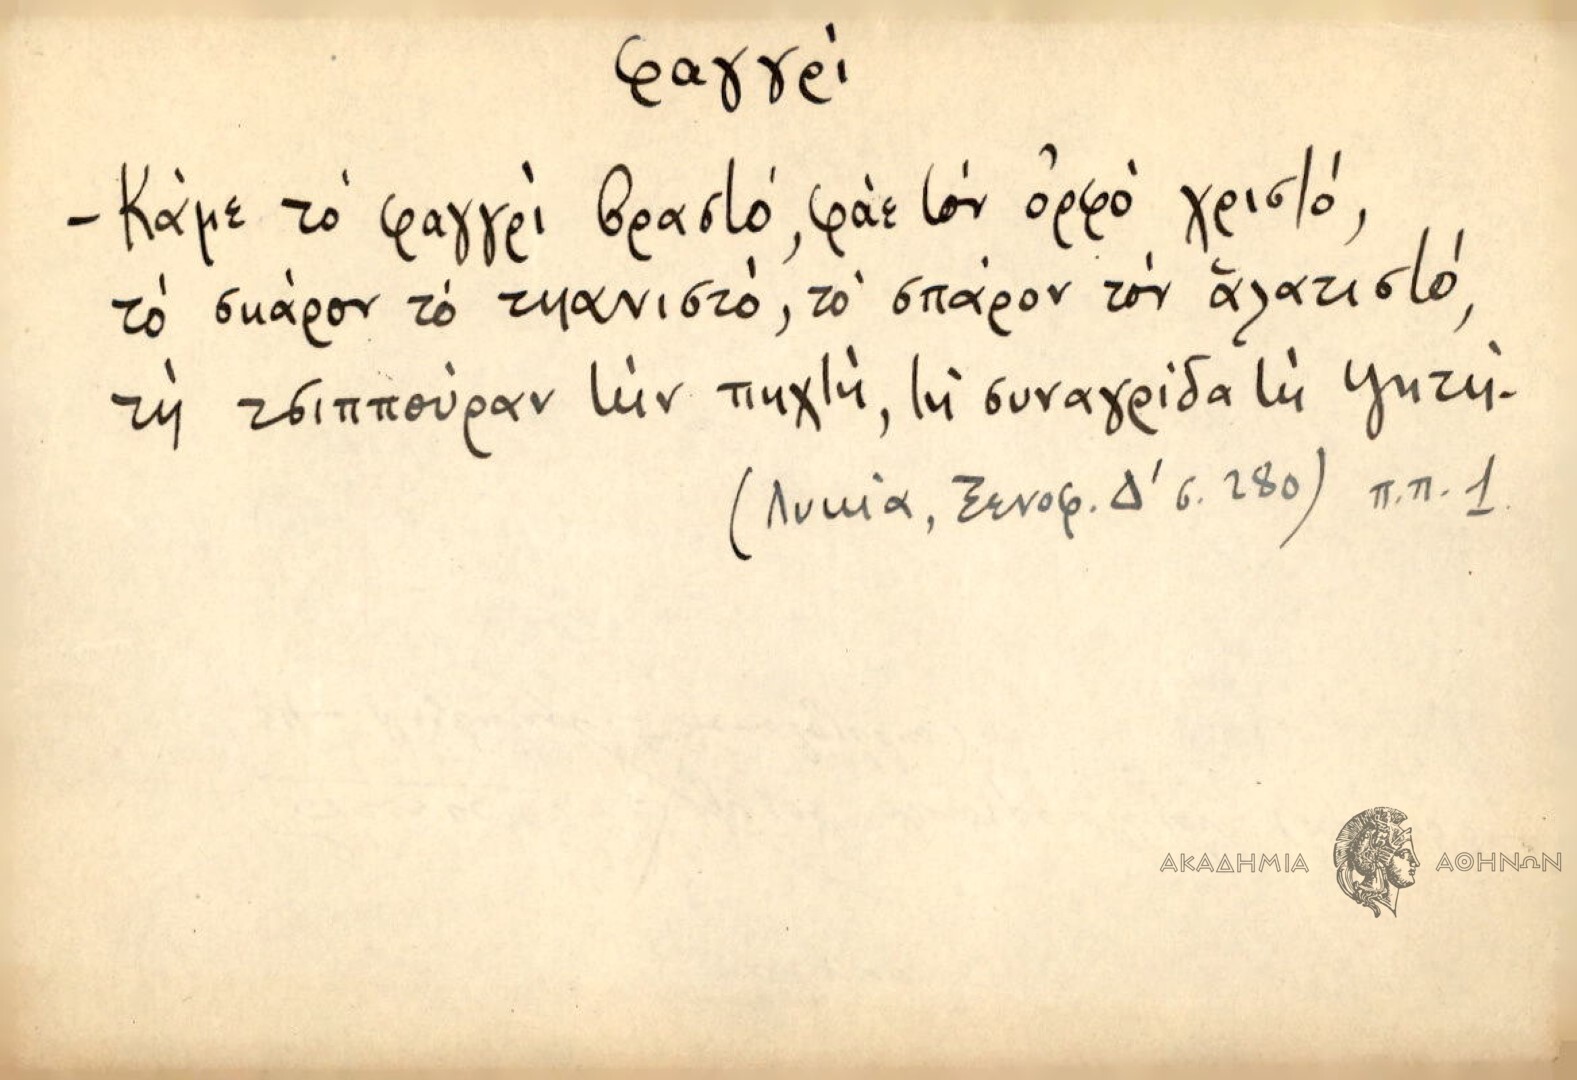 φαγγρὶ
- Κάμε τὸ φαγγρὶ βραστό, φάε τὸν ὀρφὸ χριστό,
τὸ σκάρον τὸ τηανιστό, τὸ σπάρον τὸν ἁλατιστό,
τὴ τσιππούραν τὴν πηχτή, τὴ συναγρίδα τὴ ψητή.
(Λυκία, Ξενοφ. Δ' σ. 280) π.π. 1.
ΑΚΑΔΗΜΙΑ ΑΘΗΝΩΝ